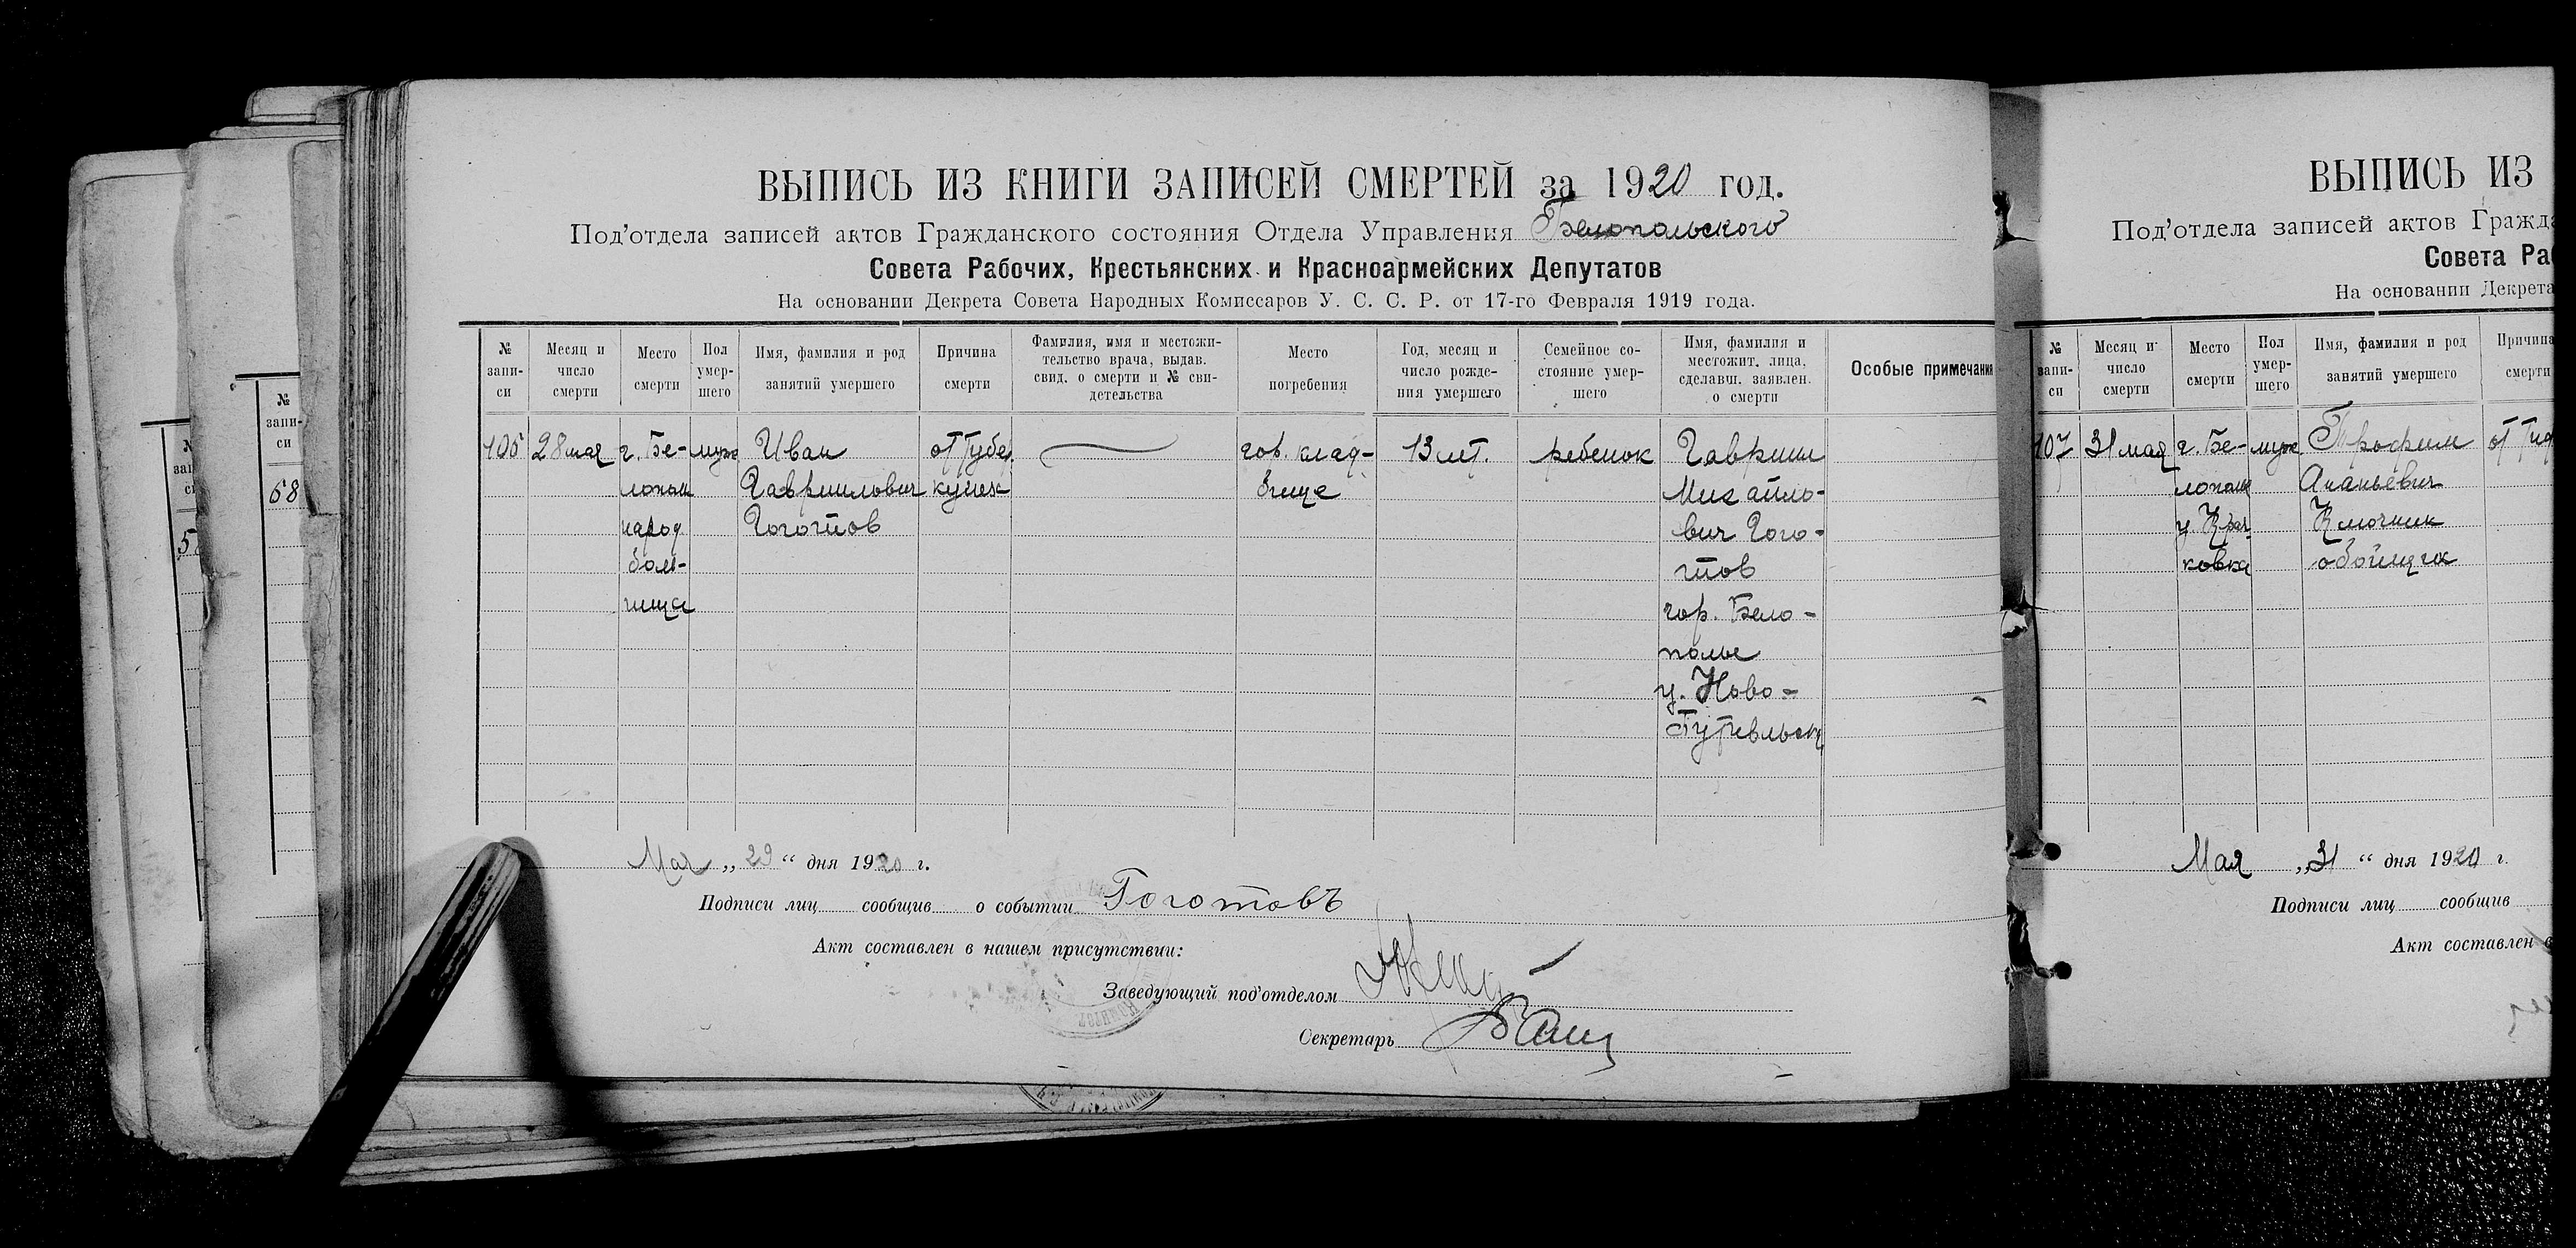 ВЫПИСЬ ИЗ КНИГИ ЗАПИСЕЙ СМЕРТЕЙ за 1920 год.
Под'отдела записей актов Гражданского состояния Отдела Управления Белопольского
Совета Рабочих, Крестьянских и Красноармейских Депутатов
На основании Декрета Совета Народных Комиссаров У. С. С. Р. от 17-го Февраля 1919 года.
№ запи-си
Месяц и число смерти
Место смерти
Пол умер-шего
Имя, фамилия и род занятий умершего
Причина смерти
Фамилия, имя и местожи-тельство врача, выдав. свид. о смерти и № сви-детельства
Место погребения
Год, месяц и число рожде-ния умершего
Семейное со-стояние умер-шего
Имя, фамилия и местожит. лица, сделавш. заявлен. о смерти
Особые примечания
105 28 мая г. Бе- муж Иван от Тубер. гор. клад- 13 лет. ребенок Гавриил
лополье Гавриилович кулеза бище Михайло-
народ Гоготов вич Гого-
боль- тов
ница гор. Бело-
полье
у. Ново-
Путивльск
Мая „29“ дня 1920 г.
Подписи лиц сообщив о событии Гоготовъ
Акт составлен в нашем присутствии:
Заведующий под'отделом
Секретарь
№ запи-си
58
ВЫПИСЬ ИЗ
Под'отдела записей актов Гражда
Совета Раб
На основании Декрета
№ запи-си
Месяц и число смерти
Место смерти
Пол умер-шего
Имя, фамилия и род занятий умершего
Причина смерти
107 31 мая г. Бе- муж Трофим от
лополье Ананьевич
Ключник
ковка
Мая „31“ дня 1920 г.
Подписи лиц сообщив
Акт составлен в